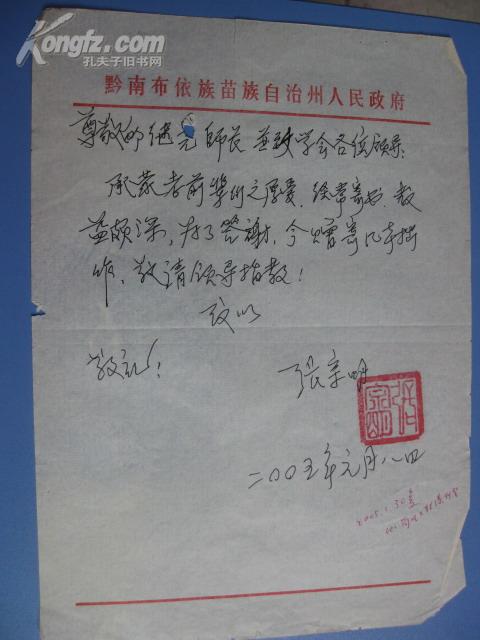 Kongfz.com
孔夫子旧书网
黔南布依族苗族自治州人民政府
尊敬的继光师长并致学会各位领导:
承蒙老前辈们之厚爱、经常寄书、教
益颇深,为了答谢,今赠寄几本拙
作、敬请领导指教!
致以
敬礼!
张宗明
二00五年元月八日
2005.1.30